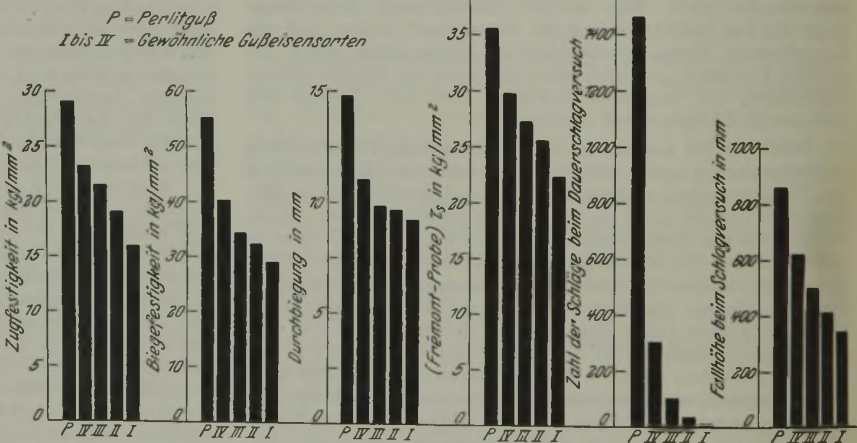 P = Perlitguß
I bis IV = Gewöhnliche Gußeisensorten
Zugfestigkeit in kg/mm²
30
25
20
15
10
5
0
P IV III II I
Biegefestigkeit in kg/mm²
60
50
40
30
20
10
0
P IV III II I
Durchbiegung in mm
15
10
5
0
P IV III II I
(Frémont-Probe) τs in kg/mm²
35
30
25
20
15
10
5
0
P IV III II I
Zahl der Schläge beim Dauerschlagversuch
1400
1200
1000
800
600
400
200
0
P IV III II I
Fallhöhe beim Schlagversuch in mm
1000
800
600
400
200
0
P IV III II I